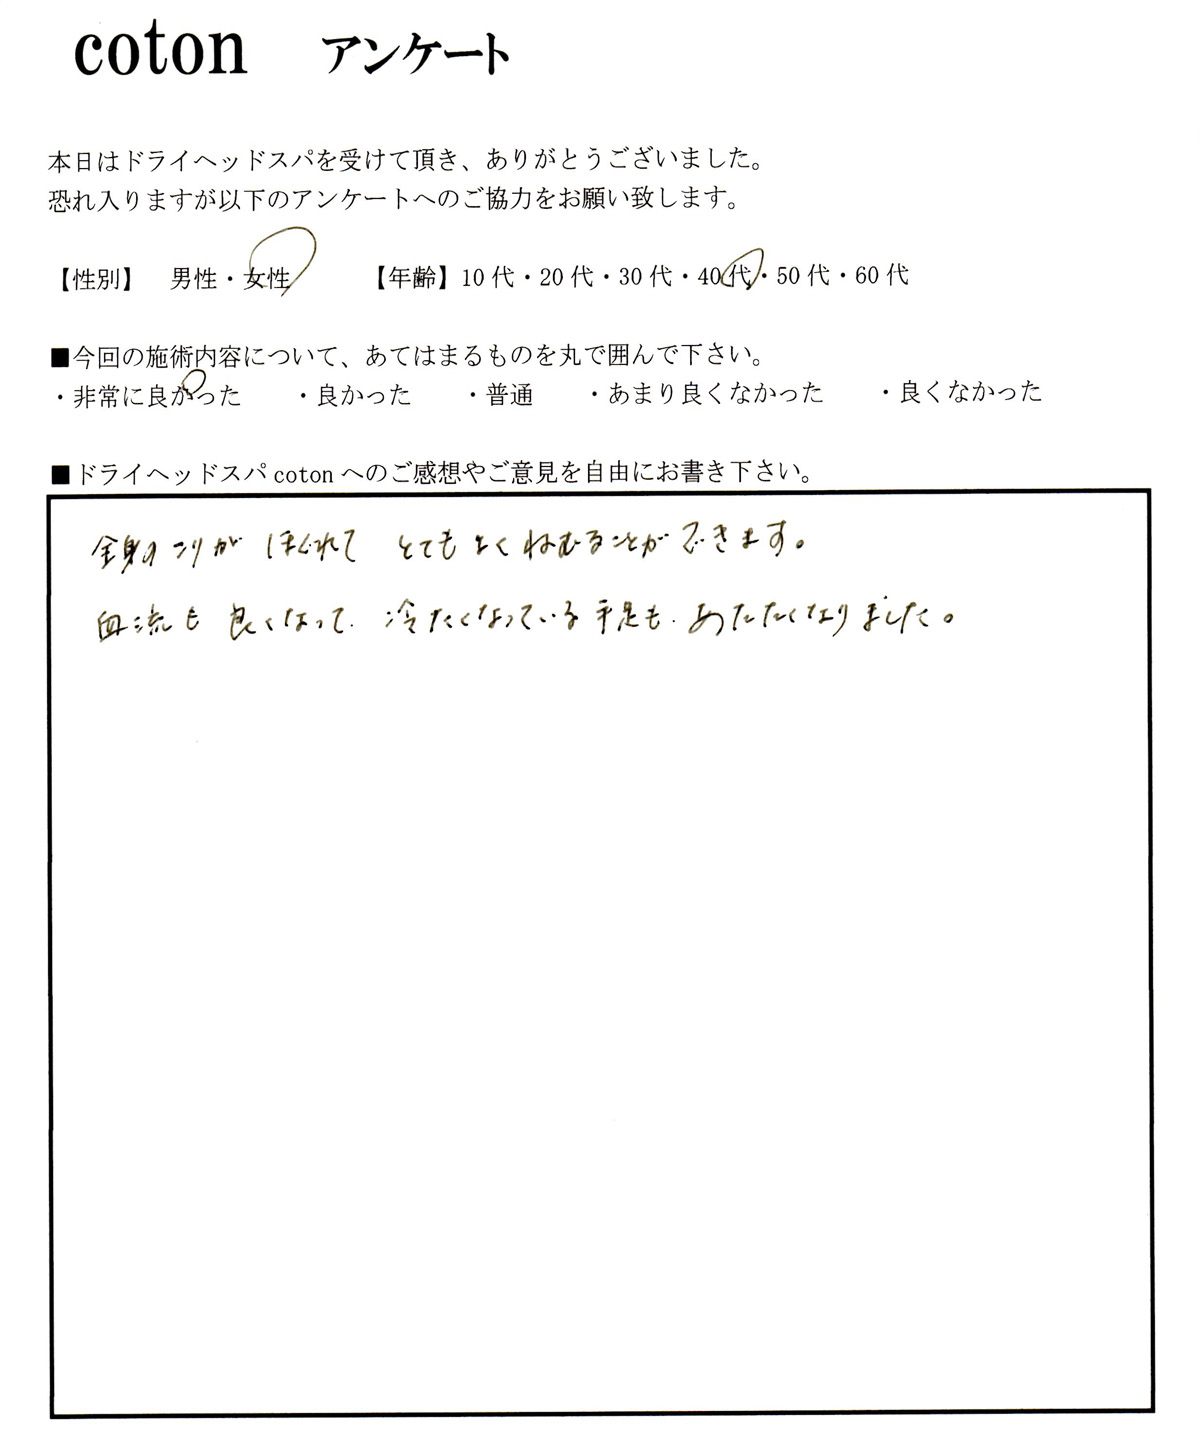 coton アンケート
本日はドライヘッドスパを受けて頂き、ありがとうございました。
恐れ入りますが以下のアンケートへのご協力をお願い致します。
【性別】 男性・女性 【年齢】10代・20代・30代・40代・50代・60代
■今回の施術内容について、あてはまるものを丸で囲んで下さい。
・非常に良かった ・良かった ・普通 ・あまり良くなかった ・良くなかった
■ドライヘッドスパcotonへのご感想やご意見を自由にお書き下さい。
全身のコリが ほぐれて とてもよくねむることができます。
血流も 良くなって、冷たくなっている手足も、あたたくなりました。